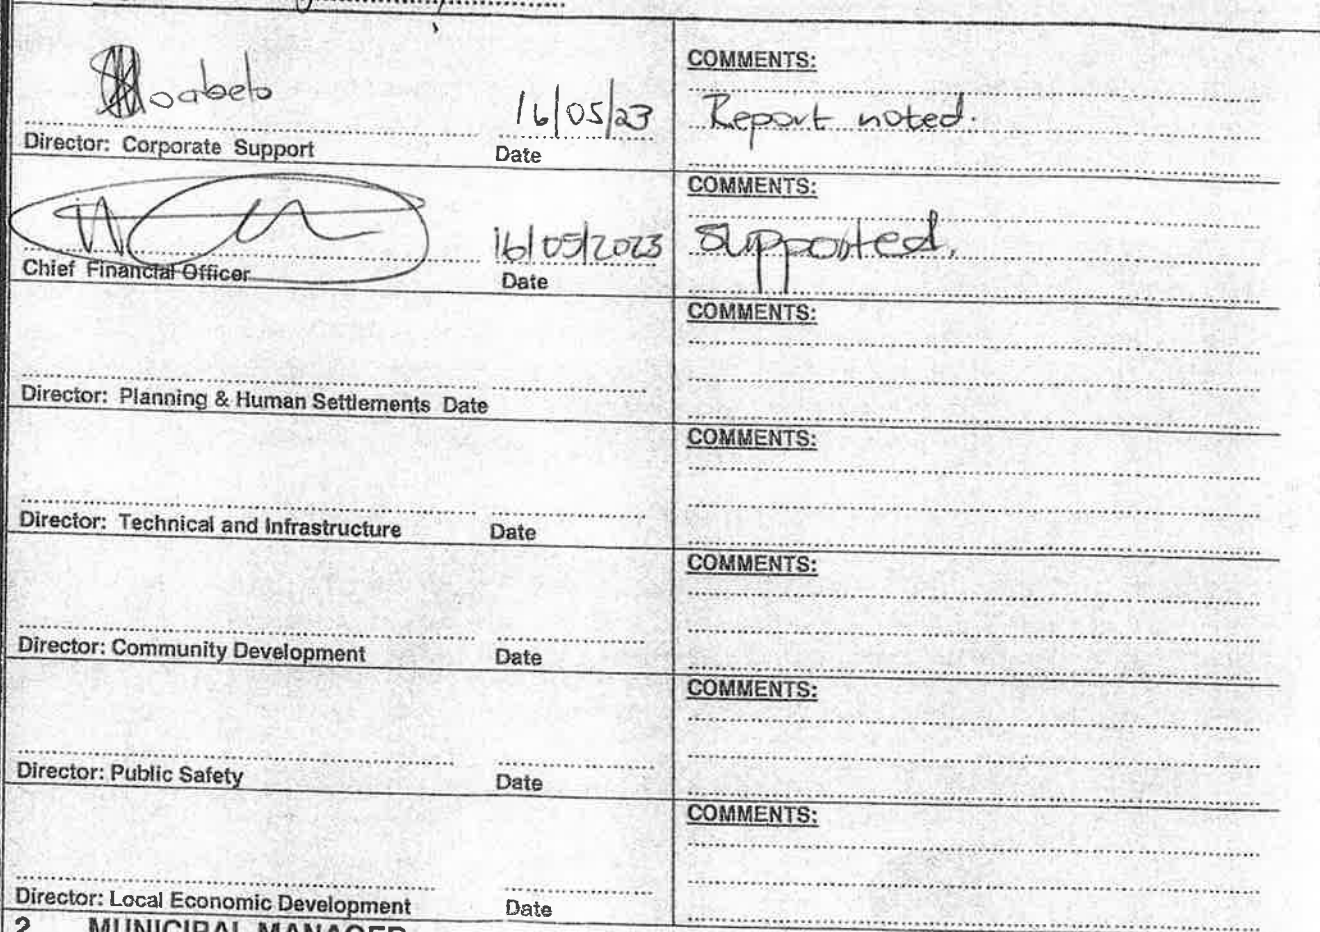 COMMENTS:
16/05/23 Report noted.
Director: Corporate Support Date
COMMENTS:
16/05/2023 Supported.
Chief Financial Officer Date
COMMENTS:
Director: Planning & Human Settlements Date
COMMENTS:
Director: Technical and Infrastructure Date
COMMENTS:
Director: Community Development Date
COMMENTS:
Director: Public Safety Date
COMMENTS:
Director: Local Economic Development Date
2 MUNICIPAL MANAGER